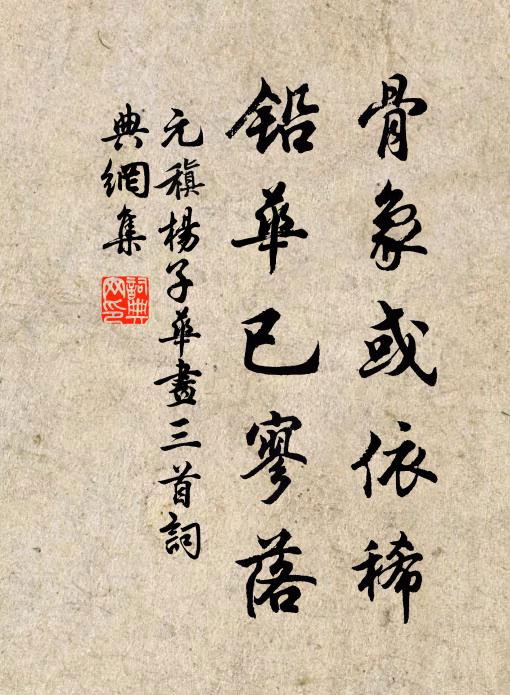 骨象或依稀
鉛華已寥落
元稹楊子華畫三首詞
典網集
詞典
网印